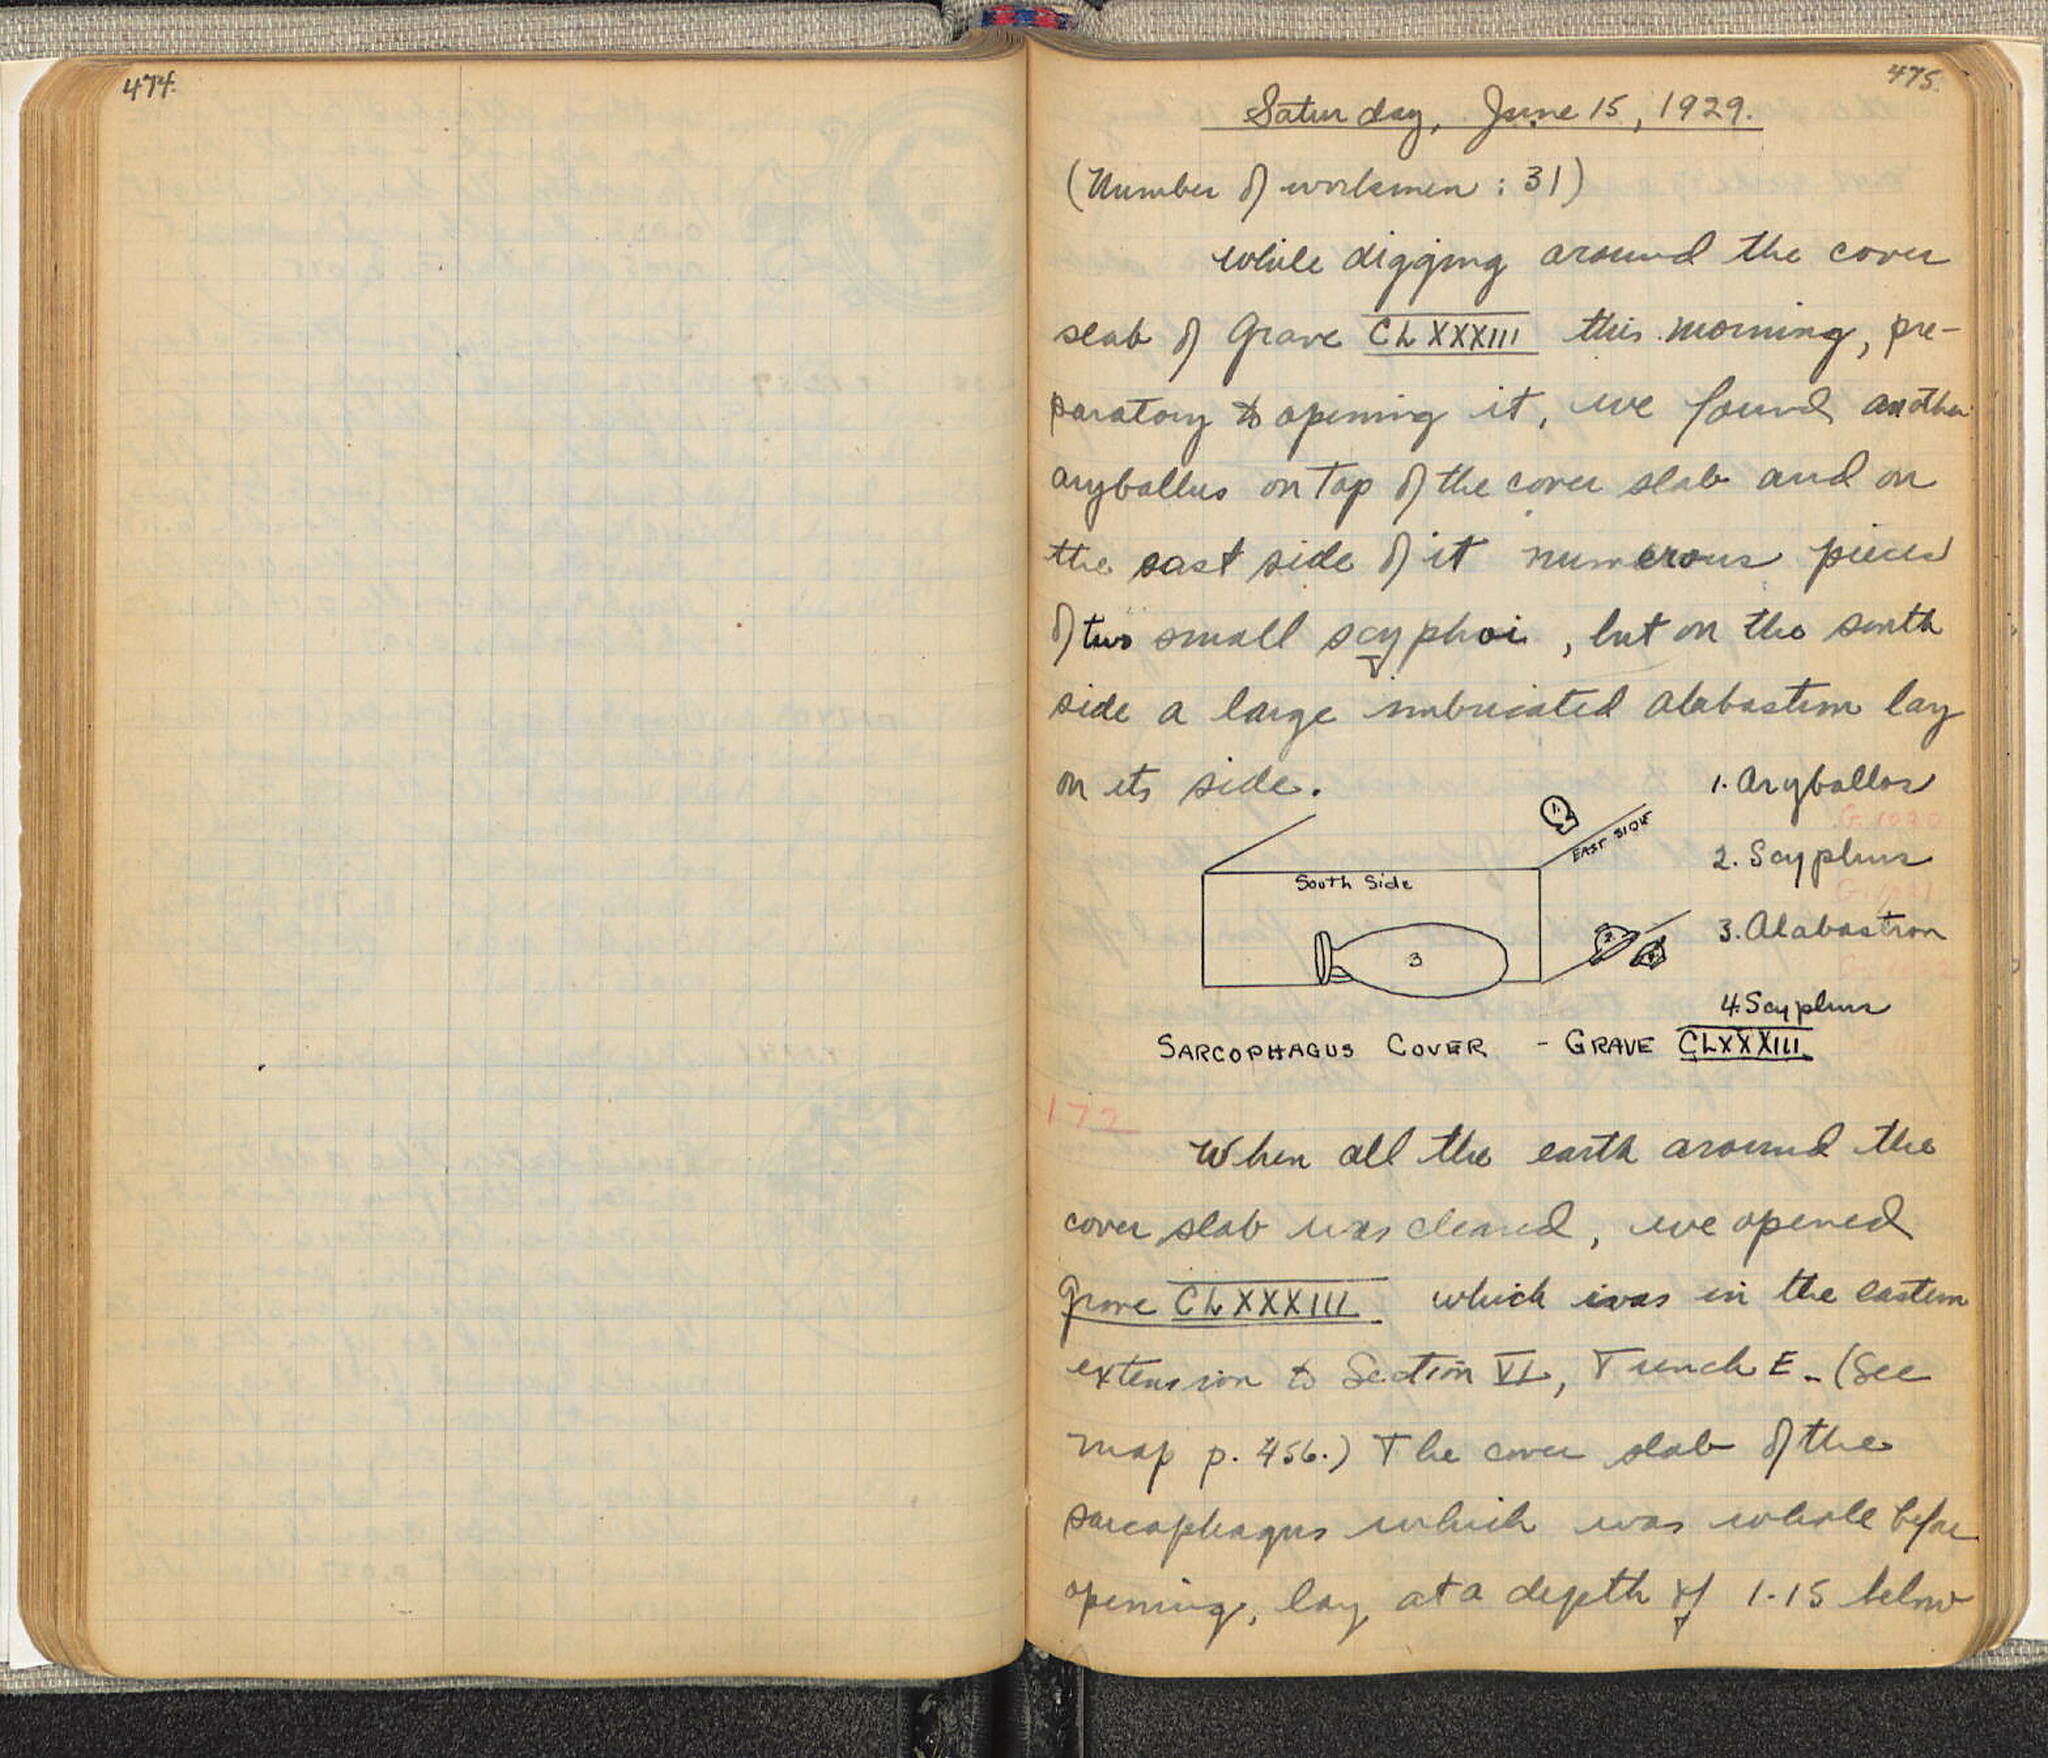 474.
475.
Saturday, June 15, 1929.
(Number of workmen : 31)
While digging around the cover
slab of Grave CLXXXIII this morning, pre-
paratory to opening it, we found another
aryballus on top of the cover slab and on
the east side of it numerous pieces
of two small scyphoi, but on the south
side a large imbricated alabastron lay
on its side.
1. Aryballos
G. 1020
2. Scyphus
3. Alabastron
4. Scyphus
1.
EAST SIDE
South Side
2
3
SARCOPHAGUS COVER - GRAVE CLXXXIII
172
When all the earth around the
cover slab was cleared, we opened
Grave CLXXXIII which was in the eastern
extension to Section VI, Trench E. (See
map p. 456.) The cover slab of the
sarcophagus which was whole before
opening, lay at a depth of 1.15 below